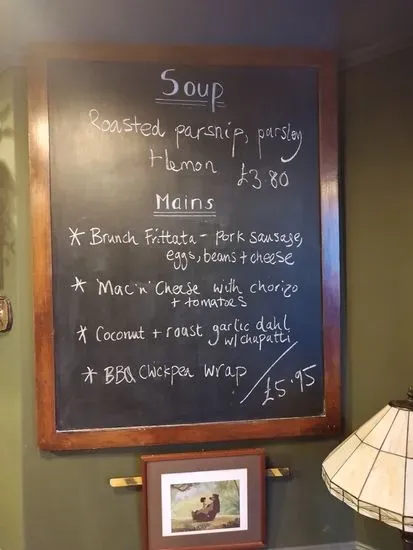 Soup
Roasted parsnip, parsley
+ lemon £3.80
Mains
* Brunch Frittata - pork sausage,
eggs, beans + cheese
* Mac 'n' Cheese with chorizo
+ tomatoes
* Coconut + roast garlic dahl
w/ chapatti
* BBQ Chickpea wrap
£5.95